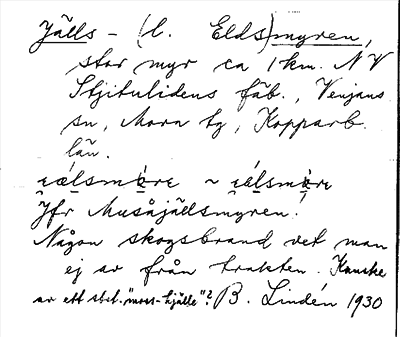 Jälls - (l. Elds)myren,
stor myr ca 1 km. NV
Stjitulidens fäb., Venjans
sn, Mora tg, Kopparb.
län.
~
Jfr Musåjällsmyren!
Någon skogsbrand vet man
ej av från trakten. Kanske
av ett sbst. "moss-hjälle"? B. Lindén 1930